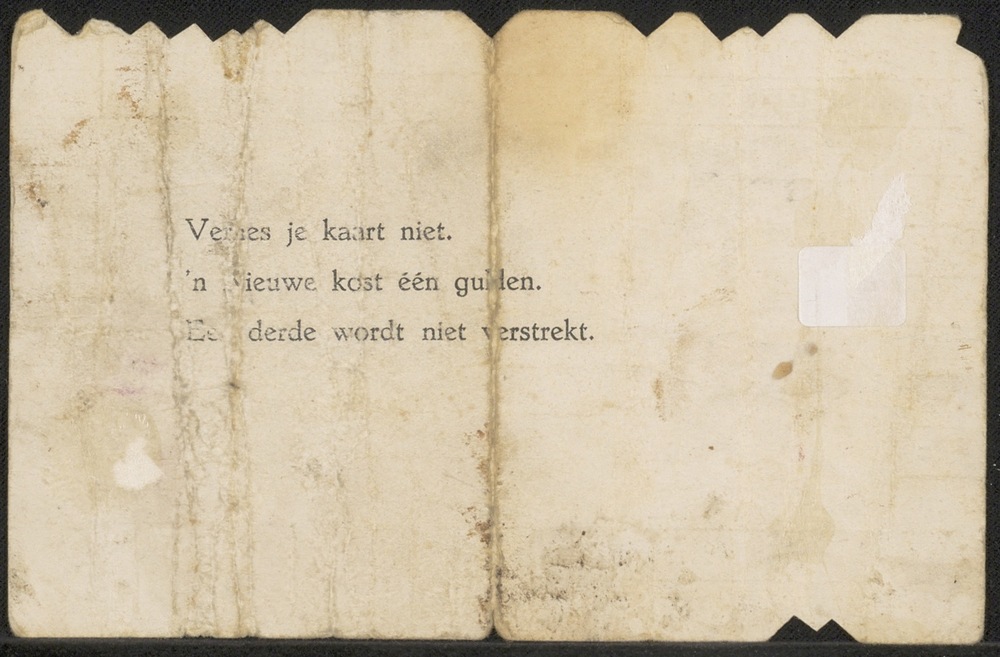 Verlies je kaart niet.
'n Nieuwe kost één gulden.
Een derde wordt niet verstrekt.